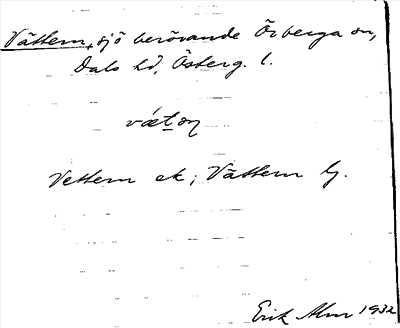 Vättern, sjö berörande Örberga sn,
Dals hd, Österg. l.
vætǝn
Vettern ek; Vättern lj.
Erik Alm 1932